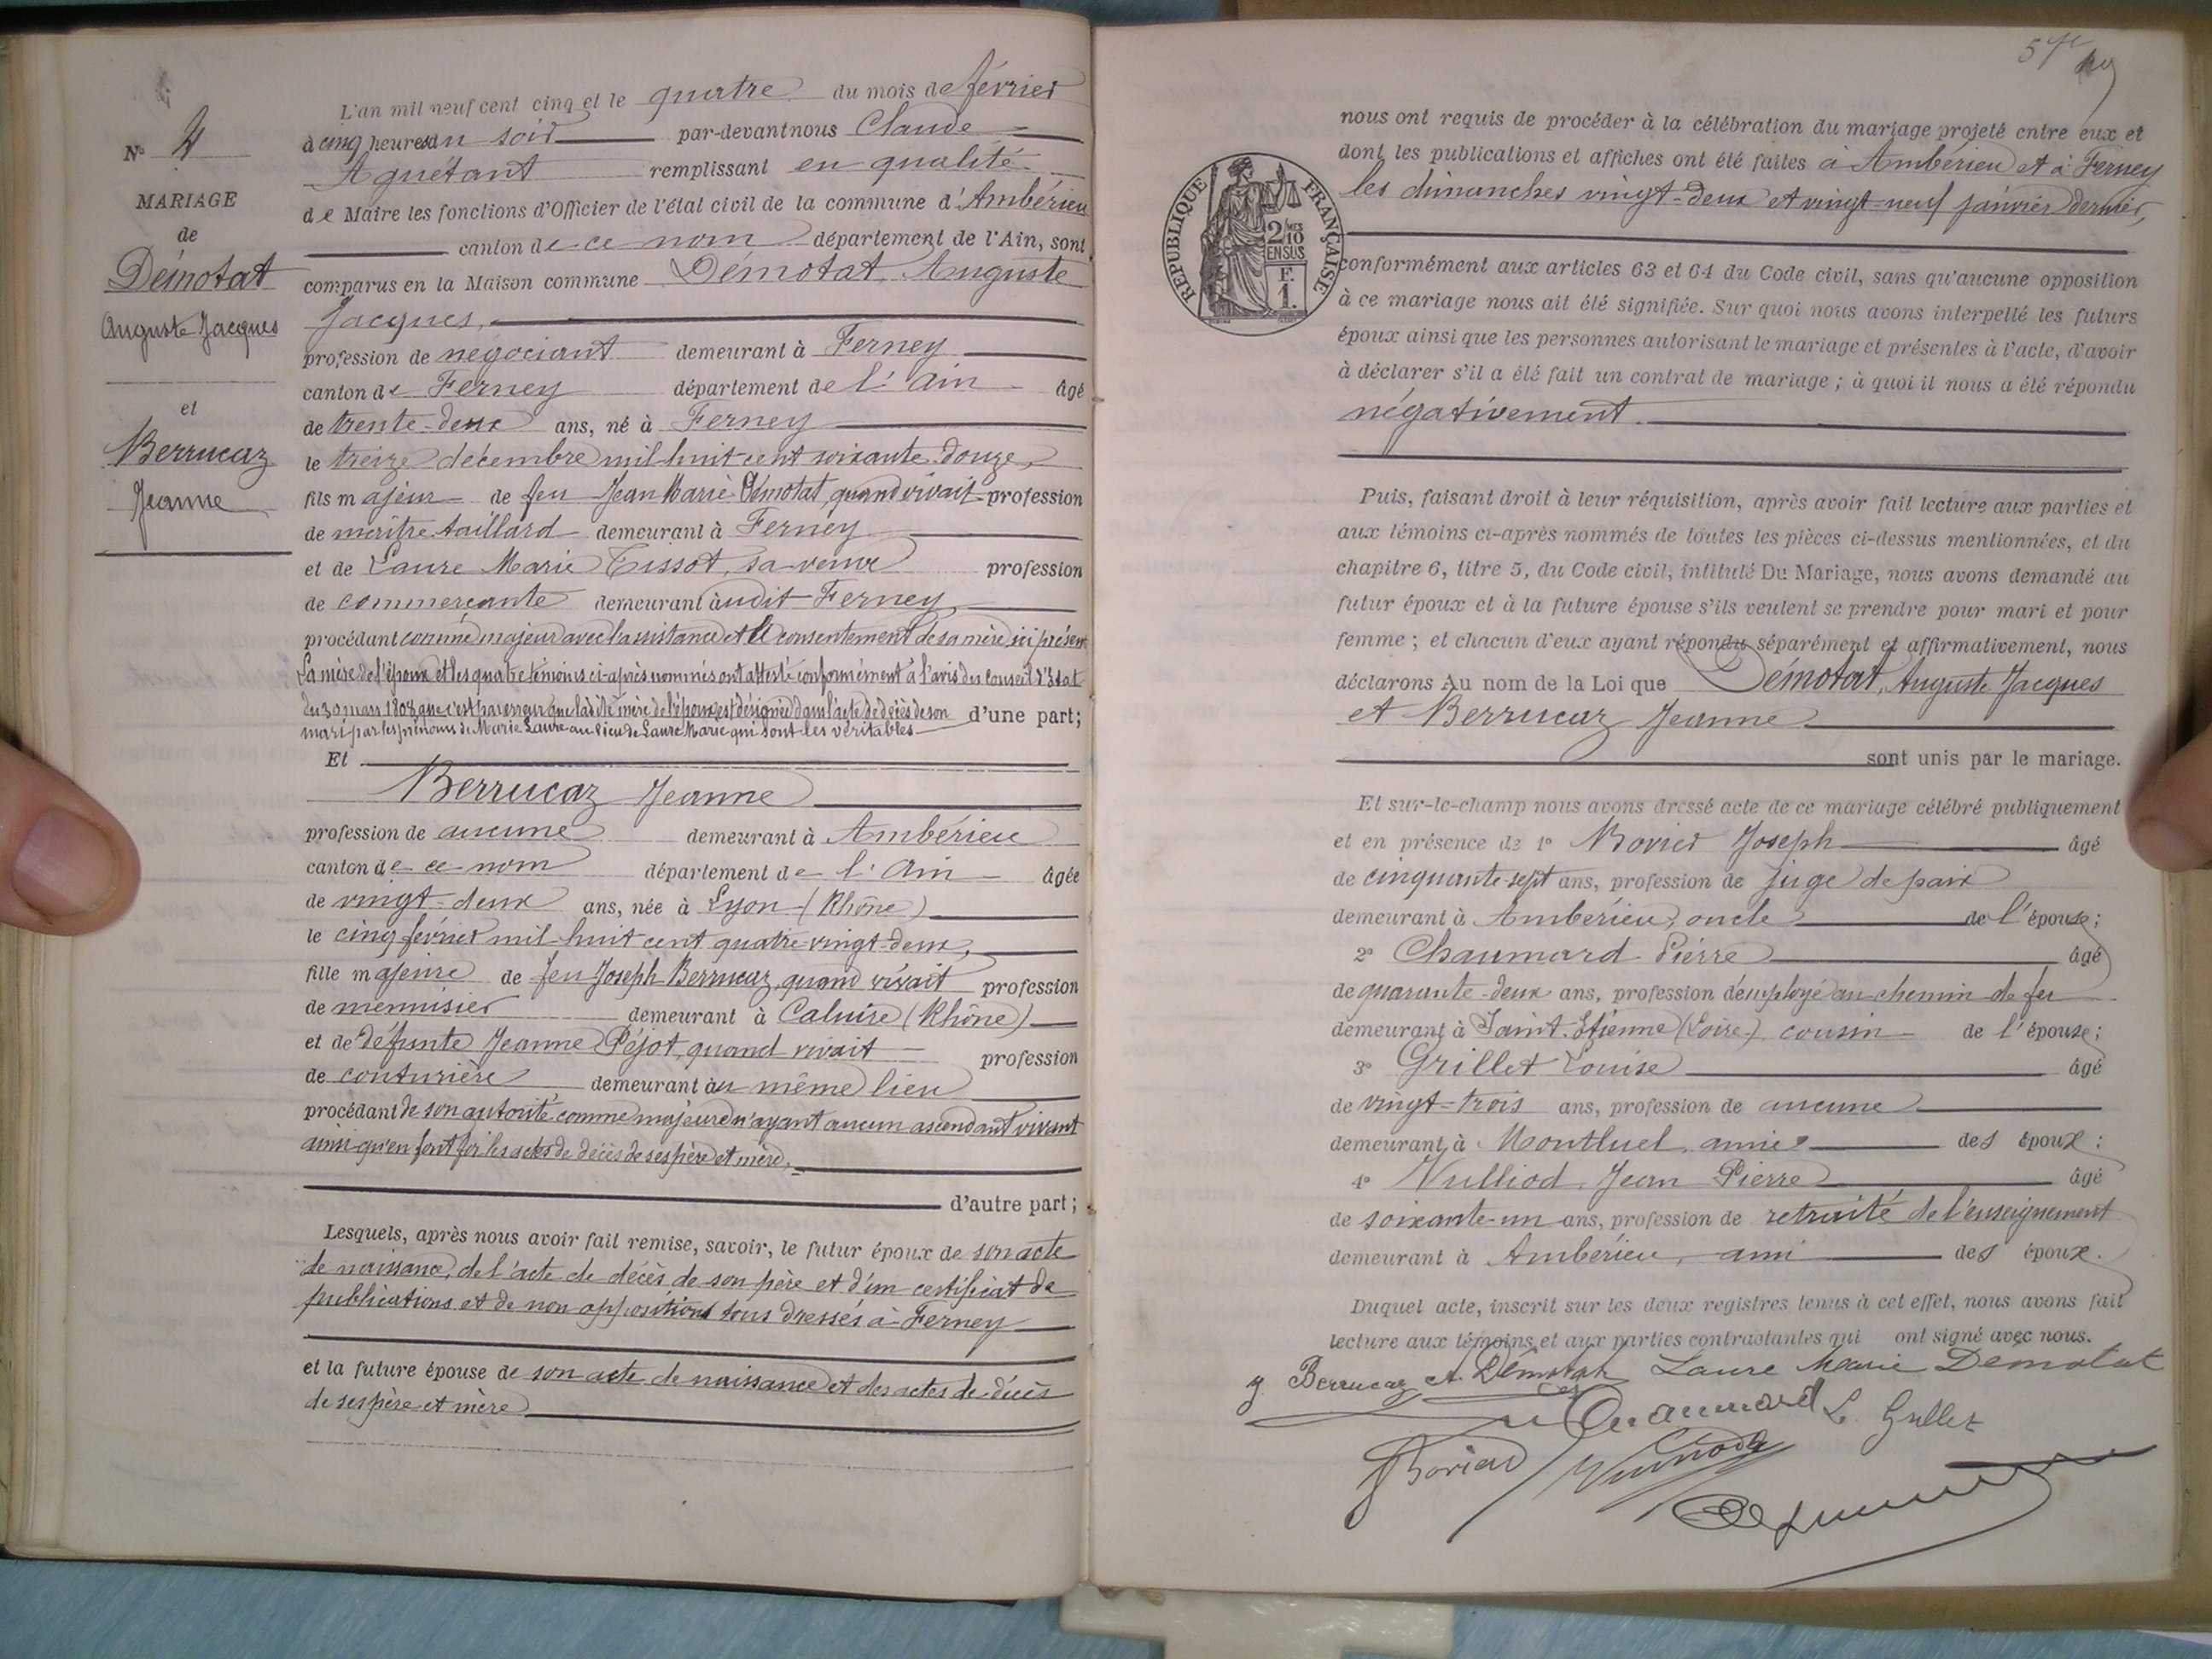 L'an mil neuf cent cinq et le quatre du mois de février
à cinq heures du soir par-devant nous Claude
Aguétant remplissant en qualité
de Maire les fonctions d'Officier de l'état civil de la commune d'Ambérieu
canton de ce nom département de l'Ain, sont
comparus en la Maison commune Démotat Auguste
Jacques,
profession de négociant demeurant à Ferney
canton de Ferney département de l'Ain âgé
de trente-deux ans, né à Ferney
le treize décembre mil huit cent soixante-douze,
fils majeur de feu Jean Marie Démotat, quand vivait profession
de demeurant à Ferney
et de Laure Marie Tissot, sa veuve profession
de commerçante demeurant audit Ferney,
procédant comme majeur avec l'assistance et le consentement de sa mère, ici présente
La mère de l'époux et les quatre témoins ci-après nommés ont attesté conformément à l'avis du Conseil d'Etat
du 30 mars 1808 que c'est par erreur que ladite mère de l'époux est désignée dans l'acte de décès de son d'une part;
mari par les prénoms de Marie Laure au lieu de Laure Marie qui sont les véritables
Et
Berrucaz Jeanne
profession de aucune demeurant à Ambérieu
canton de ce nom département de l'Ain âgée
de vingt-deux ans, née à Lyon (Rhône)
le cinq février mil huit cent quatre-vingt-deux,
fille majeure de feu Joseph Berrucaz, quand vivait profession
de menuisier demeurant à Caluire (Rhône)
et de défunte Jeanne Péjot, quand vivait profession
de couturière demeurant au même lieu
procédant de son autorité comme majeure n'ayant aucun ascendant vivant
ainsi qu'en font foi les actes de décès de ses père et mère,
d'autre part;
Lesquels, après nous avoir fait remise, savoir, le futur époux de son acte
de naissance, de l'acte de décès de son père et d'un certificat de
publications et de non oppositions tous dressés à Ferney
et la future épouse de son acte de naissance et des actes de décès
de ses père et mère
N° 4
MARIAGE
de
Démotat
Auguste Jacques
et
Berrucaz
Jeanne
5
nous ont requis de procéder à la célébration du mariage projeté entre eux et
dont les publications et affiches ont été faites à Ambérieu et à Ferney
les dimanches vingt-deux et vingt-neuf janvier dernier,
conformément aux articles 63 et 64 du Code civil, sans qu'aucune opposition
à ce mariage nous ait été signifiée. Sur quoi nous avons interpellé les futurs
époux ainsi que les personnes autorisant le mariage et présentes à l'acte, d'avoir
à déclarer s'il a été fait un contrat de mariage; à quoi il nous a été répondu
négativement.
Puis, faisant droit à leur réquisition, après avoir fait lecture aux parties et
aux témoins ci-après nommés de toutes les pièces ci-dessus mentionnées, et du
chapitre 6, titre 5, du Code civil, intitulé Du Mariage, nous avons demandé au
futur époux et à la future épouse s'ils veulent se prendre pour mari et pour
femme; et chacun d'eux ayant répondu séparément et affirmativement, nous
déclarons Au nom de la Loi que Démotat, Auguste Jacques
et Berrucaz Jeanne
sont unis par le mariage.
Et sur-le-champ nous avons dressé acte de ce mariage célébré publiquement
et en présence de 1° Bovier Joseph âgé
de cinquante-sept ans, profession de juge de paix
demeurant à Ambérieu, oncle de l'épouse;
2° Chaumard Pierre âgé
de quarante-deux ans, profession d'employé au chemin de fer
demeurant à Saint-Etienne (Loire), cousin de l'épouse;
3° Grillet Louise âgé
de vingt-trois ans, profession de aucune
demeurant à Montluel, amie des époux;
4° Vulliod, Jean Pierre âgé
de soixante-un ans, profession de retraité de l'enseignement
demeurant à Ambérieu, ami des époux.
Duquel acte, inscrit sur les deux registres tenus à cet effet, nous avons fait
lecture aux témoins et aux parties contractantes qui ont signé avec nous.
J. Berrucaz A. Démotat Laure Marie Démotat
Chaumard L. Grillet
Bovier Vulliod
REPUBLIQUE FRANÇAISE
2 MES
10
EN SUS
F.
1.